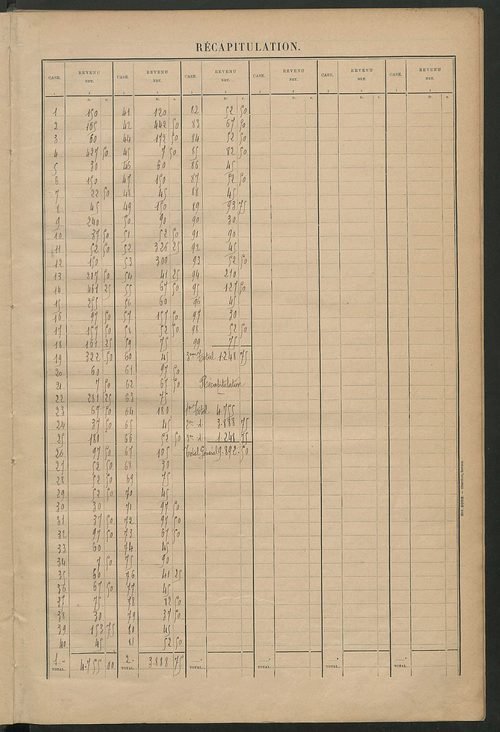 RÉCAPITULATION.
CASE. REVENU NET. CASE. REVENU NET. CASE. REVENU NET. CASE. REVENU NET. CASE. REVENU NET. CASE. REVENU NET.
1 150 41 120 82 52 50
2 165 42 442 50 83 67 50
3 60 44 172 50 84 52 50
4 427 50 45 7 50 85 82 50
5 30 46 60 86 45
6 150 47 150 87 52 50
7 22 50 48 45 88 45
8 45 49 150 89 93 75
9 240 50 90 90 30
10 37 50 51 52 50 91 90
11 52 50 52 326 25 92 45
12 150 53 300 93 52 50
13 287 50 54 41 25 94 210
14 487 25 55 67 50 95 127 50
15 255 56 60 96 45
16 97 50 57 157 50 97 30
17 157 50 58 52 50 98 52 50
18 161 25 59 75 99 75
19 322 50 60 45 3me Total 1.248 75
20 60 61 97 50
21 7 50 62 67 50 Récapitulation
22 281 25 63 75
23 67 50 64 180 1er Total 4.755
24 37 50 65 45 2me d. 3.888 75
25 180 66 52 50 3me d. 1.248 75
26 97 50 67 105 Total Général 9.892 50
27 52 50 68 30
28 52 50 69 75
29 52 50 70 45
30 30 71 97 50
31 37 50 72 97 50
32 97 50 73 67 50
33 60 74 45
34 7 50 75 90
35 60 76 41 25
36 67 50 77 45
37 75 78 82 50
38 30 79 37 50
39 153 75 80 45
40 45 81 52 50
1 TOTAL 4.755 00 2 TOTAL 3.888 75 TOTAL TOTAL TOTAL TOTAL